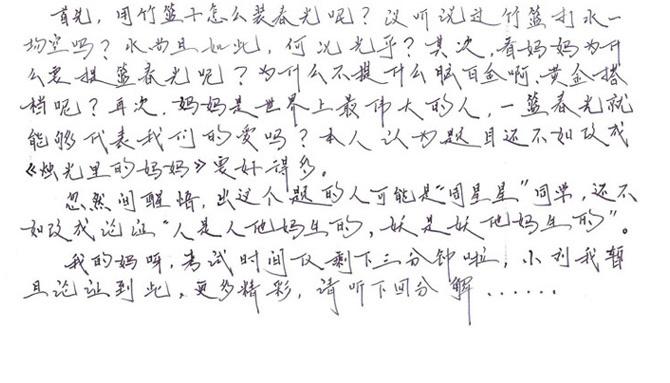 首先，用竹篮子怎么装春光呢？没听说过竹篮打水一
场空吗？水尚且如此，何况光乎？其次，看妈妈为什
么要提篮春光呢？为什么不提什么脑白金啊，黄金搭
档呢？再次，妈妈是世界上最伟大的人，一篮春光就
能够代表我们的爱吗？本人认为题目还不如改成
《烛光里的妈妈》要好得多。
忽然间醒悟，出这个题的人可能是“周星星”同学，还不
如改成论证“人是人他妈生的，妖是妖他妈生的”。
我的妈呀，考试时间仅剩下三分钟啦，小刘我暂
且论证到此，更多精彩，请听下回分解......